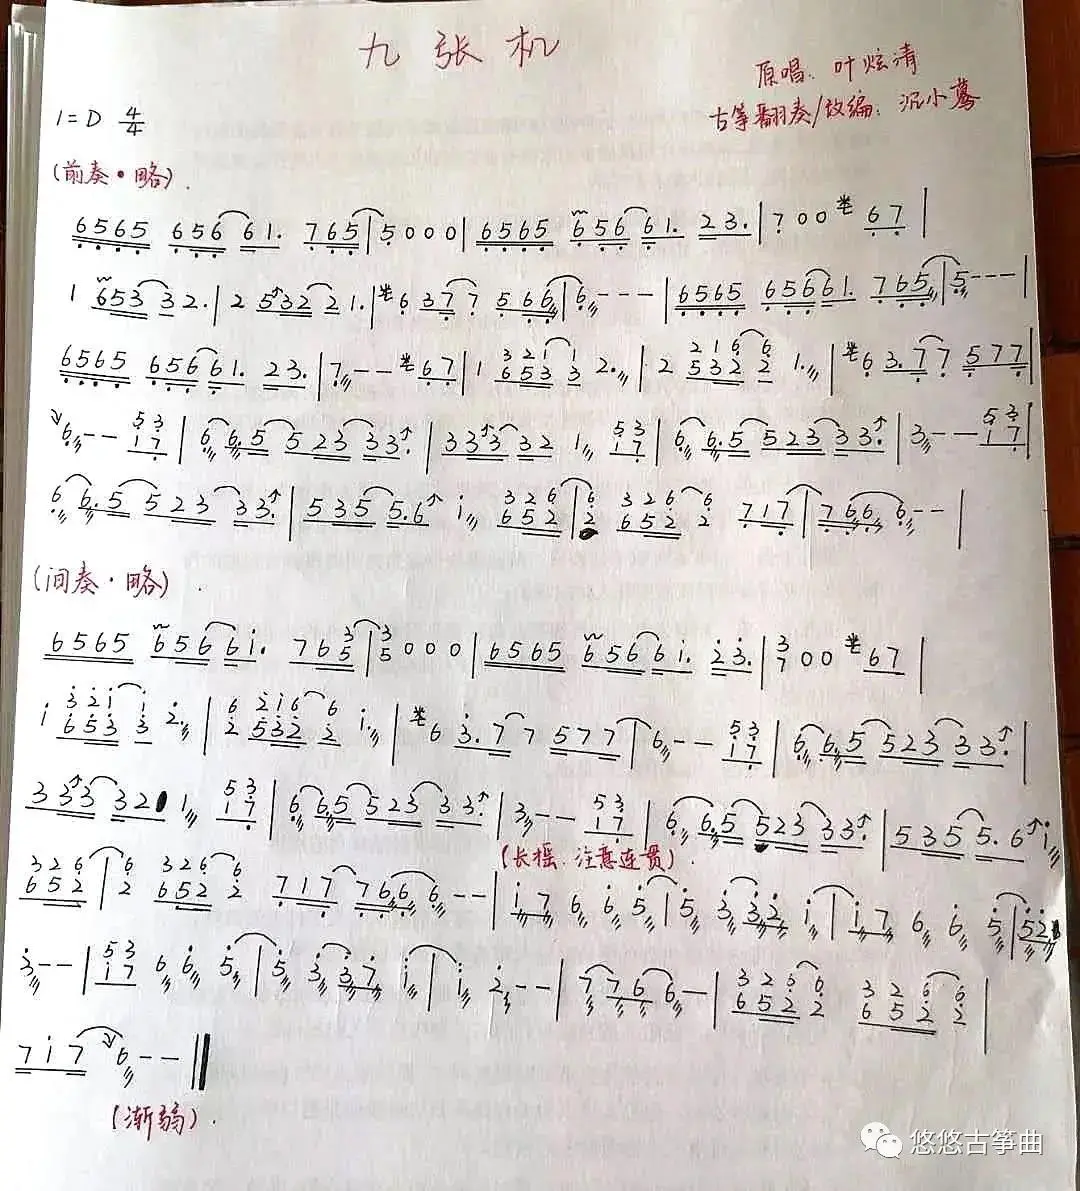 九张机
原唱：叶炫清
1=D 4/4
古筝翻奏/改编：沉小莺
(前奏·略).
6565 656 61. 765|5000|6565 656 61. 23.|700 67|
1 653 32.|2 532 21.|6 377 566|6---|6565 656 61. 765|5---|
6565 656 61. 23.|7-- 67|1 653 3 2.|2 532 2 1.|6 3.77 577|
6-- 17|6 6.5 523 33.|333 32 1 17|6 6.5 523 33.|3-- 17|
6 6.5 523 33.|535 5.6 1 652|2 652 2 717|766 6--|
(间奏·略).
6565 656 61. 765|5000|6565 656 61. 23.|700 67|
1 653 3 2.|2 532 2 1.|6 3.77 577|6-- 17|6 6.5 523 33.|
333 32 1 17|6 6.5 523 33.|3-- 17|6 6.5 523 33.|535 5.6 1
(长摇.注意连贯).
652|2 652 2 717 766 6--|17 6 6 5|5 3 32 1|17 6 6 5|52
3--|17 6 6 5|5 3 37 1|1 2--|776 6-|652 2 652 2|
717 6--
(渐弱).
悠悠古筝曲